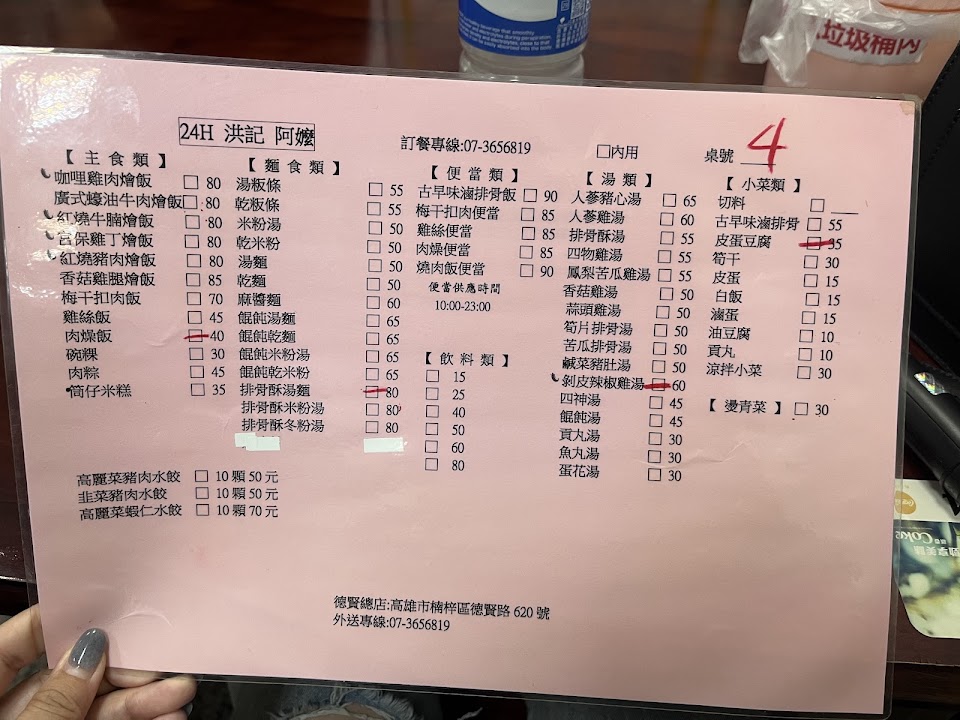 24H 洪記 阿嬤
訂餐專線:07-3656819
□內用
桌號 4
【 主 食 類 】
咖哩雞肉燴飯 □ 80
廣式蠔油牛肉燴飯 □ 80
紅燒牛腩燴飯 □ 80
宮保雞丁燴飯 □ 80
紅燒豬肉燴飯 □ 80
香菇雞腿燴飯 □ 85
梅干扣肉飯 □ 70
雞絲飯 □ 45
肉燥飯 □ 40
碗粿 □ 30
肉粽 □ 45
筒仔米糕 □ 35
高麗菜豬肉水餃 □ 10 顆 50 元
韭菜豬肉水餃 □ 10 顆 50 元
高麗菜蝦仁水餃 □ 10 顆 70 元
【 麵 食 類 】
湯板條 □ 55
乾板條 □ 55
米粉湯 □ 50
乾米粉 □ 50
湯麵 □ 50
乾麵 □ 50
麻醬麵 □ 60
餛飩湯麵 □ 65
餛飩乾麵 □ 65
餛飩米粉湯 □ 65
餛飩乾米粉 □ 65
排骨酥湯麵 □ 80
排骨酥米粉湯 □ 80
排骨酥冬粉湯 □ 80
【 便 當 類 】
古早味滷排骨飯 □ 90
梅干扣肉便當 □ 85
雞絲便當 □ 85
肉燥便當 □ 85
燒肉飯便當 □ 90
便當供應時間
10:00-23:00
【 飲 料 類 】
□ 15
□ 25
□ 40
□ 50
□ 60
□ 80
【 湯 類 】
人蔘豬心湯 □ 65
人蔘雞湯 □ 60
排骨酥湯 □ 55
四物雞湯 □ 55
鳳梨苦瓜雞湯 □ 55
香菇雞湯 □ 50
蒜頭雞湯 □ 50
筍片排骨湯 □ 50
苦瓜排骨湯 □ 50
鹹菜豬肚湯 □ 50
剝皮辣椒雞湯 □ 60
四神湯 □ 45
餛飩湯 □ 45
貢丸湯 □ 30
魚丸湯 □ 30
蛋花湯 □ 30
【 小菜類 】
切料 □
古早味滷排骨 □ 55
皮蛋豆腐 □ 35
筍干 □ 30
皮蛋 □ 15
白飯 □ 15
滷蛋 □ 15
油豆腐 □ 10
貢丸 □ 10
涼拌小菜 □ 30
【 燙青菜 】 □ 30
德賢總店:高雄市楠梓區德賢路 620 號
外送專線:07-3656819
垃圾桶內
Coke